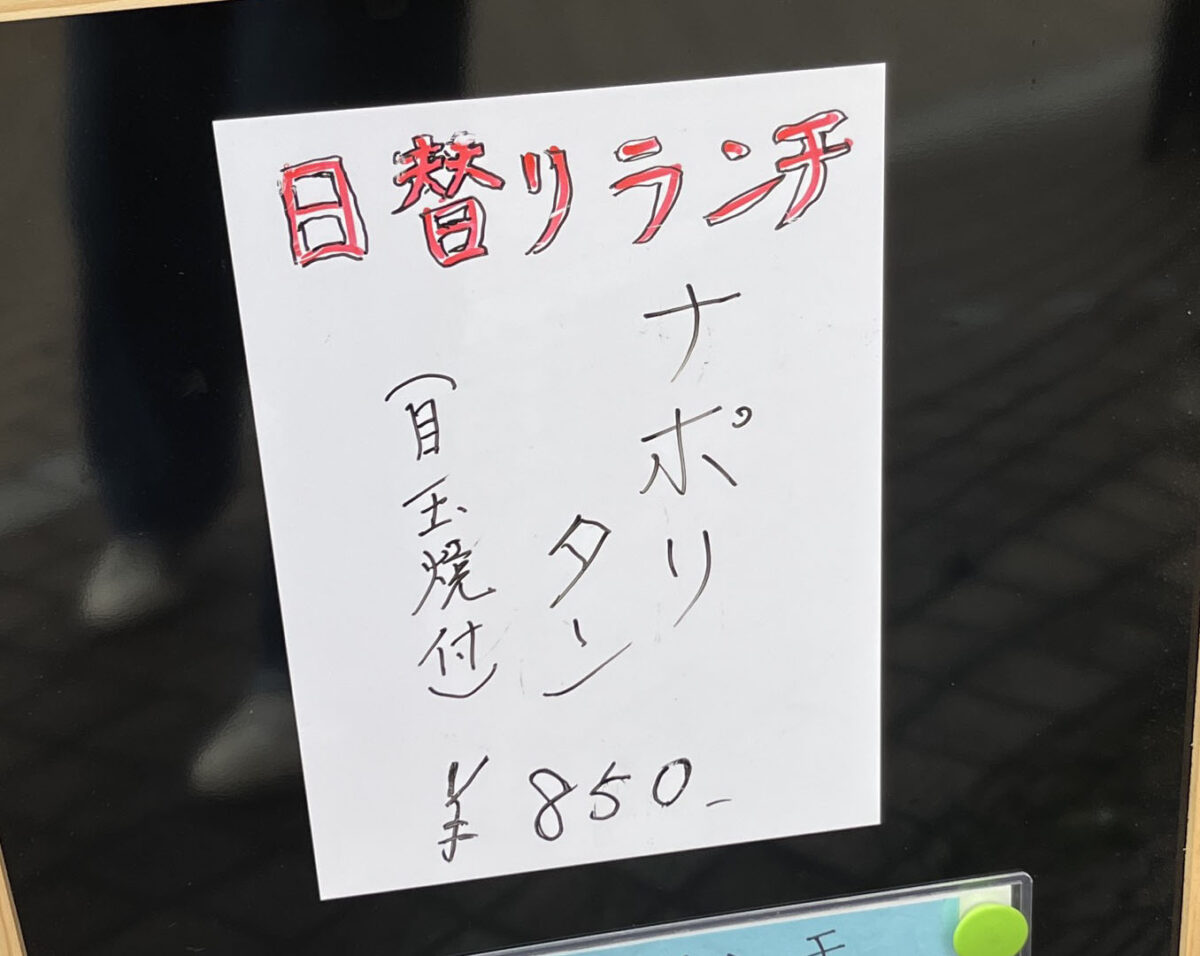 日替リランチ
ナポリ
タン
(目玉焼付)
¥850-